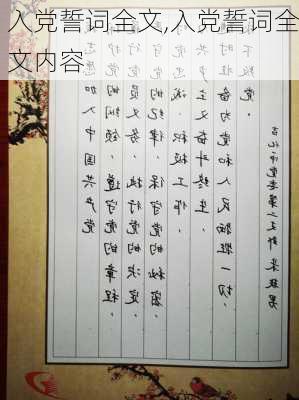 入党誓词全文,入党誓词全
文内容
志愿加入中国共产党
护党的纲领，遵守党的章程，
员义务，执行党的决定，
守党的纪律，保守党的秘密，
党忠诚，积极工作，
共产主义奋斗终生，
时准备为党和人民牺牲一切，
不叛党。
第二支部